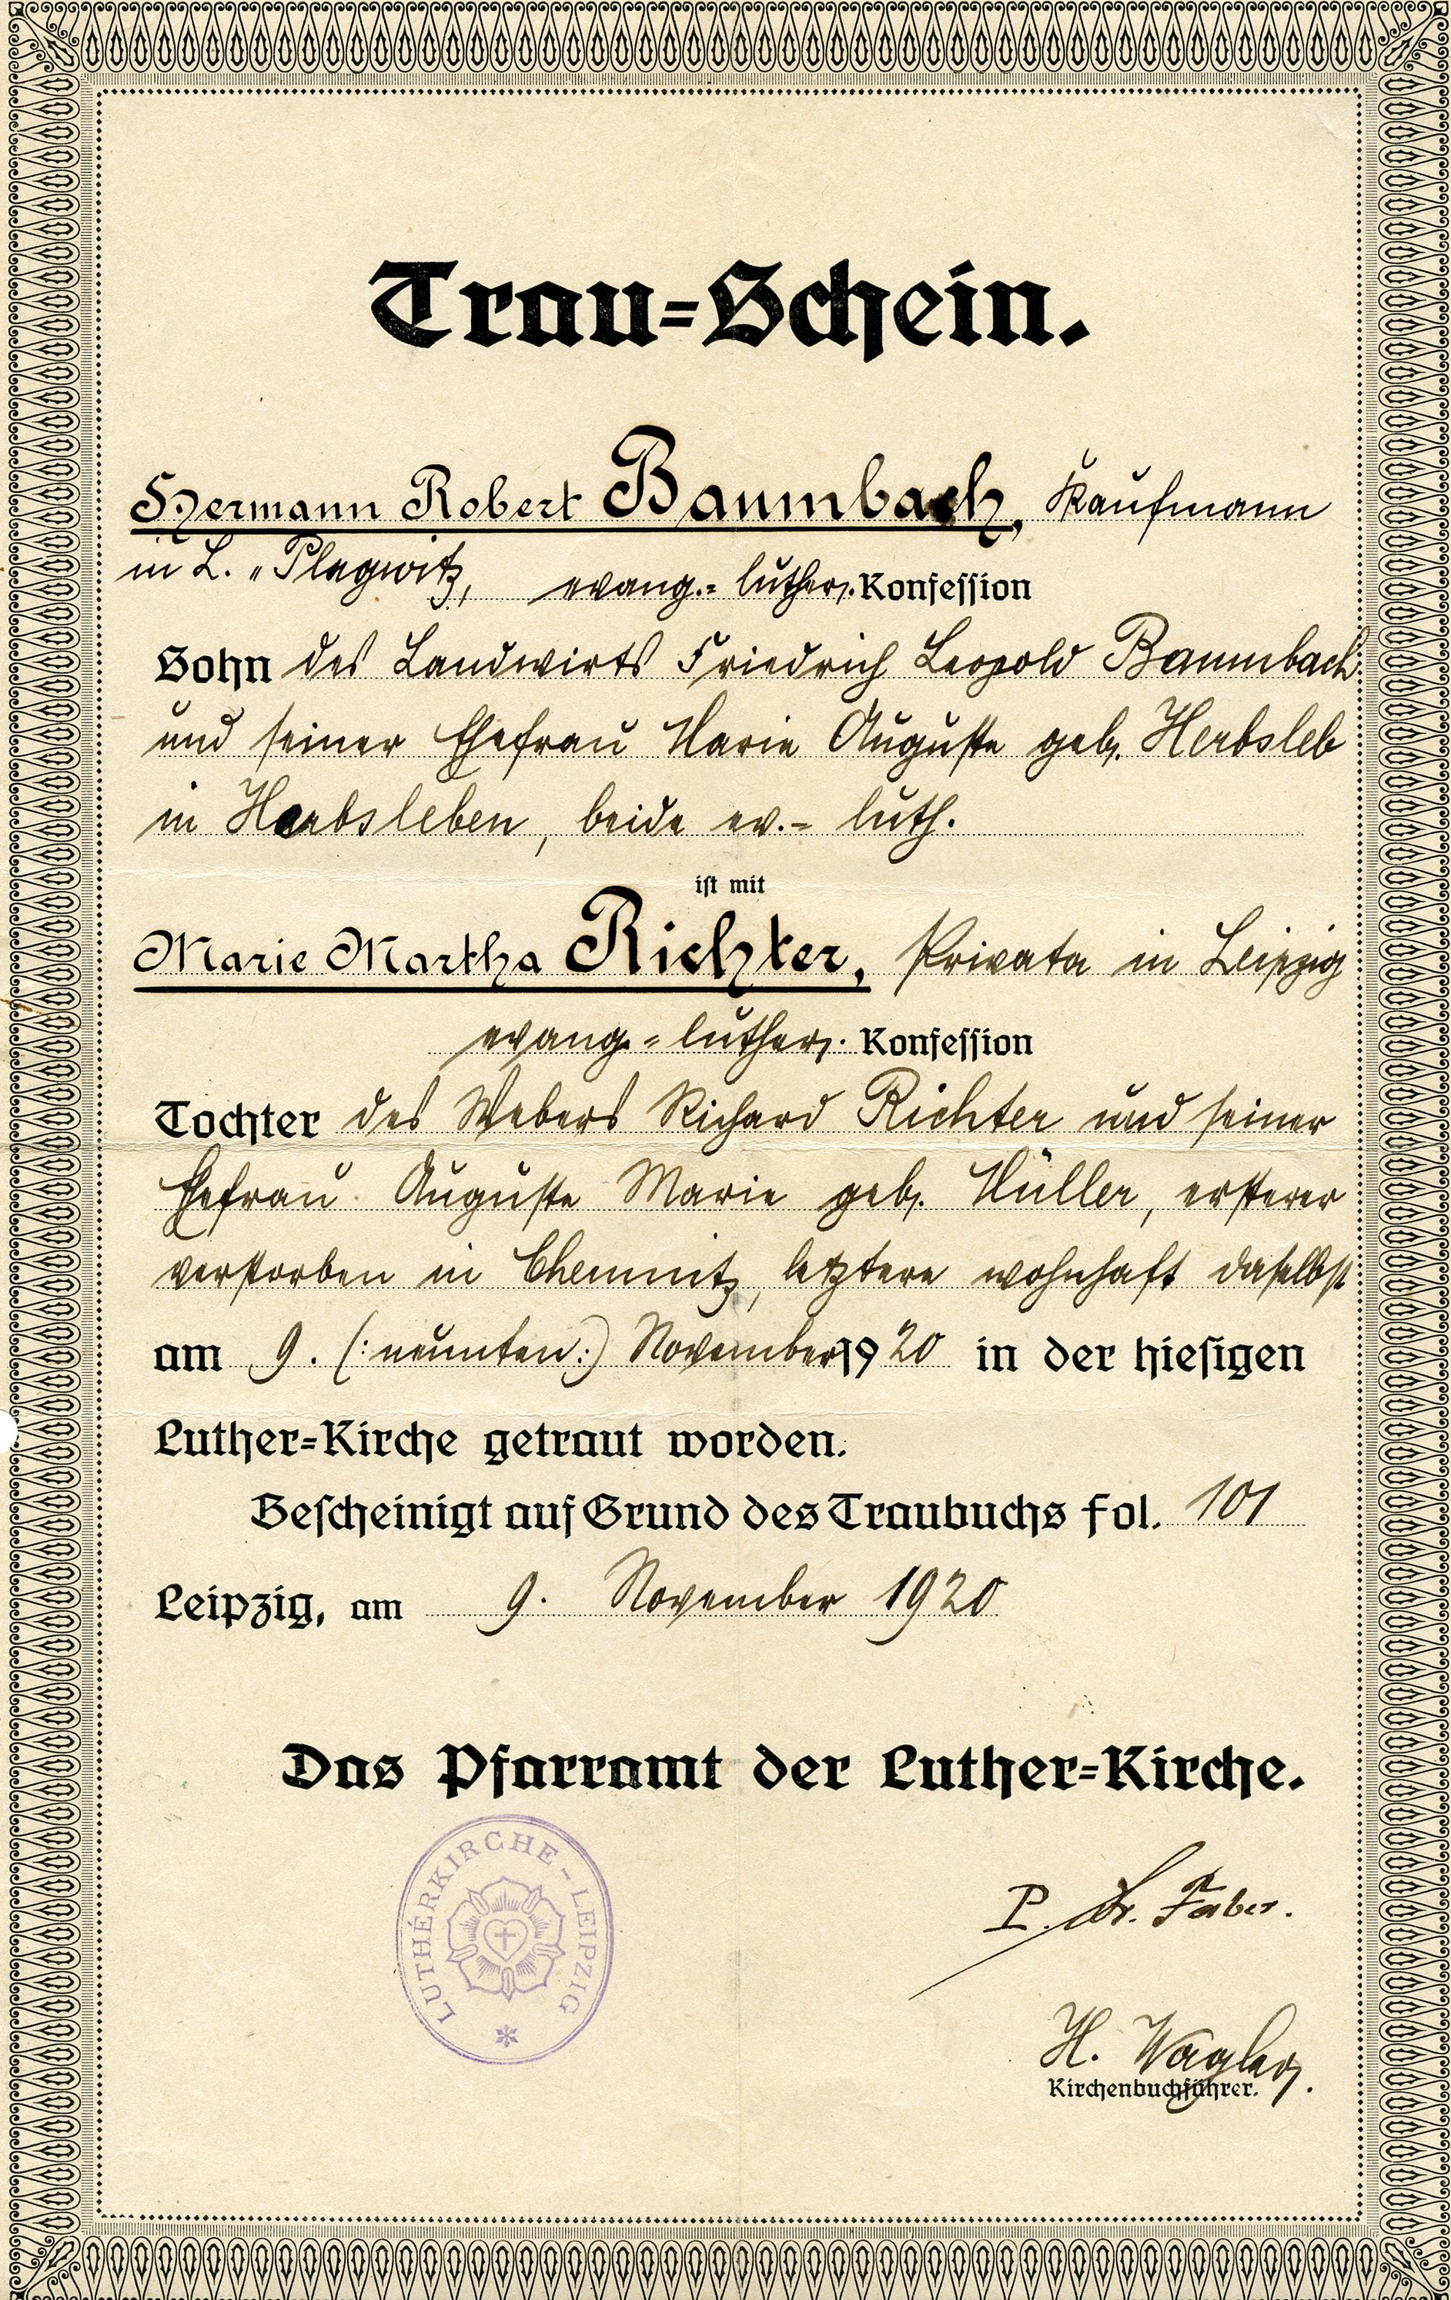 Trau=Schein.
Hermann Robert Baumbach, Kaufmann
in L. „Plagwitz, evang.= luther. Konfession
Sohn des Landwirts Friedrich Leopold Baumbach
und seiner Ehefrau Marie Auguste geb. Herbsleb
in Herbsleben, beide ev.= luth.
ist mit
Marie Martha Richter, Privata in Leipzig
evang.= luther. Konfession
Tochter des Webers Richard Richter und seiner
Ehefrau Auguste Marie geb. Müller, ersterer
verstorben in Chemnitz, letztere wohnhaft daselbst
am 9. (: neunten :) November 1920 in der hiesigen
Luther=Kirche getraut worden.
Bescheinigt auf Grund des Traubuchs Fol. 101
Leipzig, am 9. November 1920
Das Pfarramt der Luther=Kirche.
LUTHERKIRCHE - LEIPZIG
P. Dr. Faber.
H. Wagler.
Kirchenbuchführer.